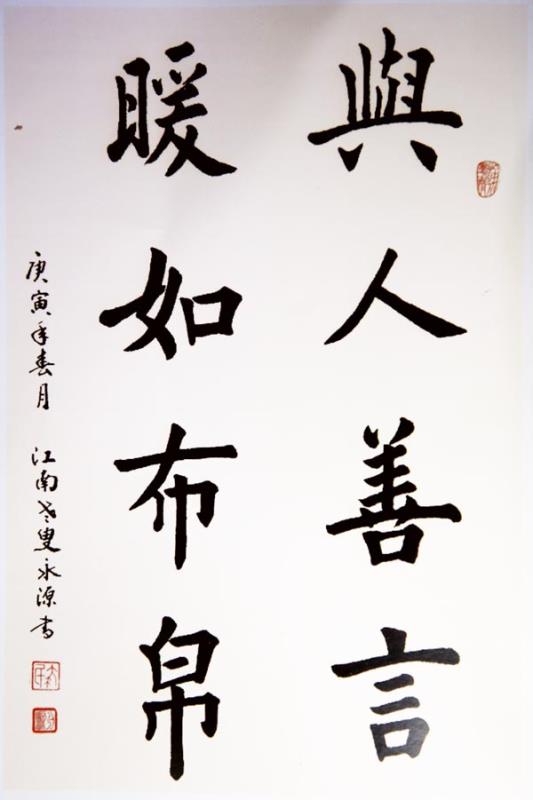 與人善言
暖如布帛
庚寅年春月 江南老叟永源書